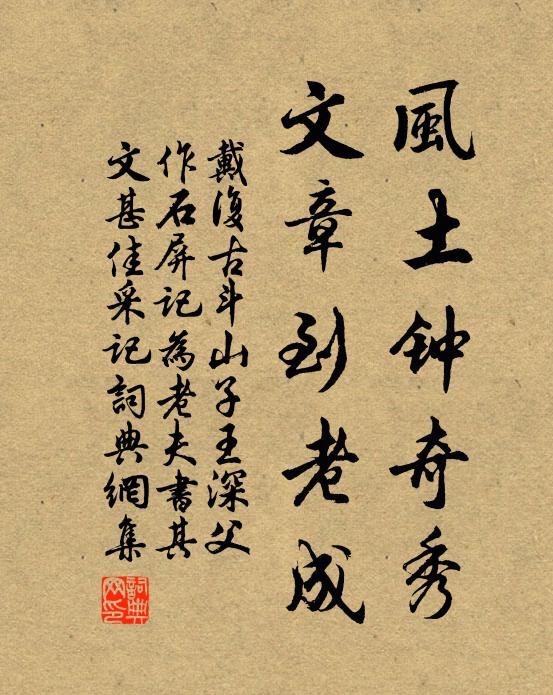 風土钟奇秀
文章到老成
戴復古斗山子王深父
作石屏記為老夫書其
文甚佳采記詞典網集
詞典网印